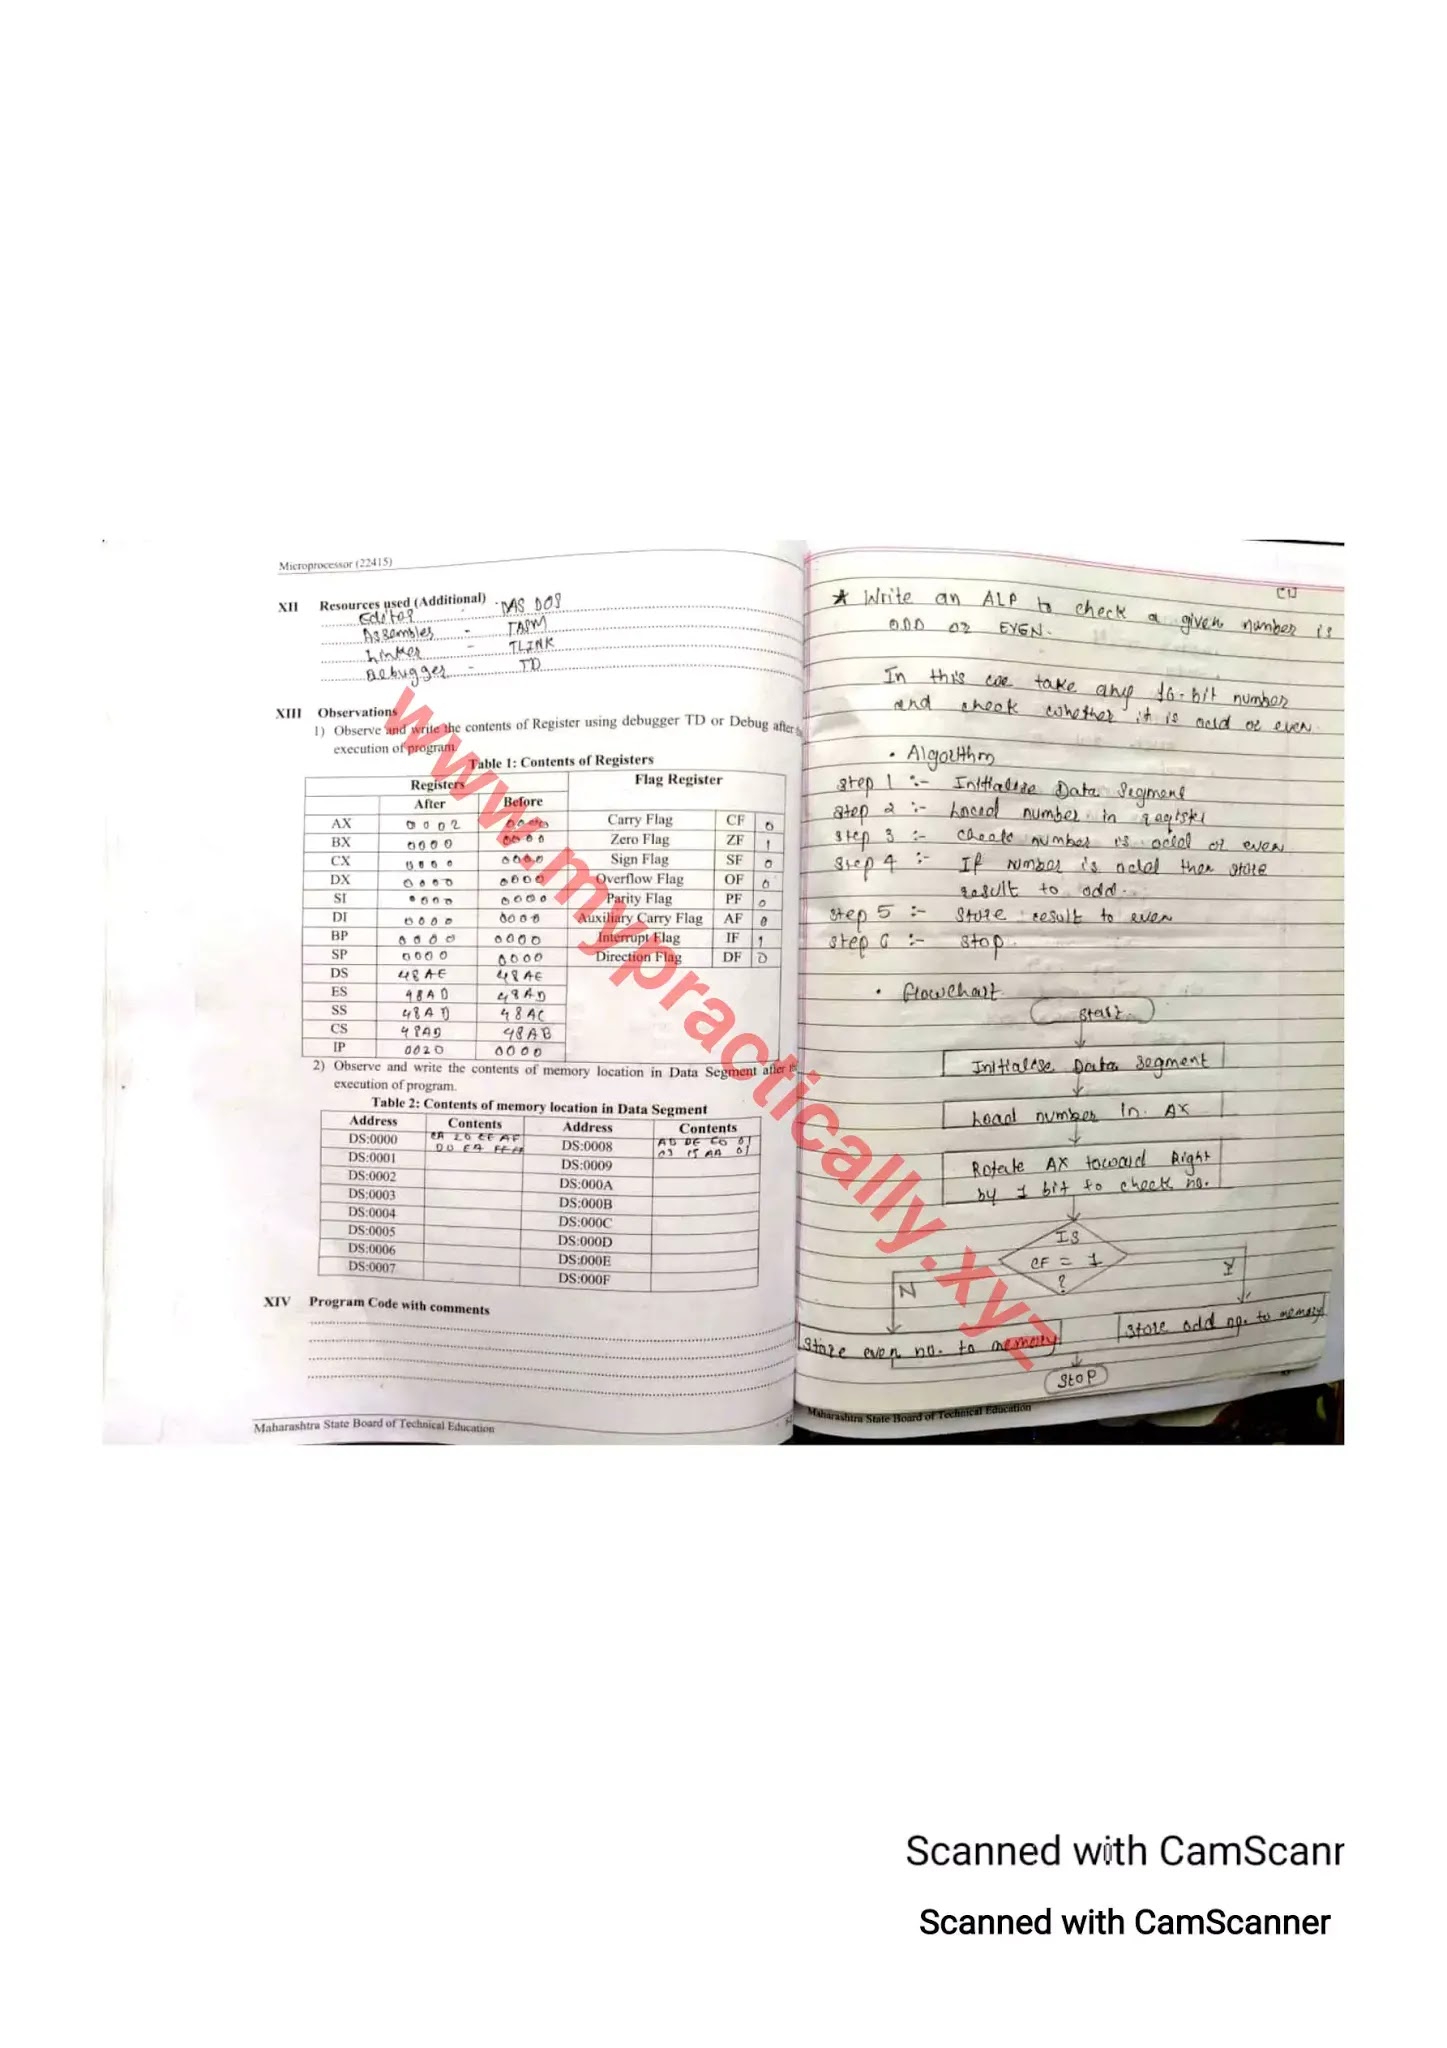 Microprocessor (22415)
XII Resources used (Additional)
Editor - DAS DOS
Assembler - TASM
Linker - TLINK
Debugger - TD
XIII Observations
1) Observe and write the contents of Register using debugger TD or Debug after the
execution of program.
Table 1: Contents of Registers
Registers Flag Register
After Before
AX 0002 0000 Carry Flag CF 0
BX 0000 0000 Zero Flag ZF 1
CX 0000 0000 Sign Flag SF 0
DX 0000 0000 Overflow Flag OF 0
SI 0000 0000 Parity Flag PF 0
DI 0000 0000 Auxiliary Carry Flag AF 0
BP 0000 0000 Interrupt Flag IF 1
SP 0000 0000 Direction Flag DF 0
DS 48AE 48AE
ES 48AD 48AD
SS 48AD 48AC
CS 48AD 48AB
IP 0020 0000
2) Observe and write the contents of memory location in Data Segment after the
execution of program.
Table 2: Contents of memory location in Data Segment
Address Contents Address Contents
DS:0000 DS:0008
DS:0001 DS:0009
DS:0002 DS:000A
DS:0003 DS:000B
DS:0004 DS:000C
DS:0005 DS:000D
DS:0006 DS:000E
DS:0007 DS:000F
XIV Program Code with comments
Maharashtra State Board of Technical Education
* Write an ALP to check a given number is
ODD or EVEN.
In this we take any 16-bit number
and check whether it is odd or even.
• Algorithm
Step 1 :- Initialise Data Segment
Step 2 :- Load number in
Step 3 :- Check number is odd or even
Step 4 :- If number is odd then store
result to odd.
Step 5 :- Store result to even
Step 6 :- Stop.
• Flowchart
Start
Initialise Data Segment
Load number in AX
Rotate AX toward Right
by 1 bit to check no.
IS
CF = 1
?
N
Y
Store even no. to memory
Store odd no. to memory
Stop
Maharashtra State Board of Technical Education
www.mypractically.xyz
Scanned with CamScanr
Scanned with CamScanner